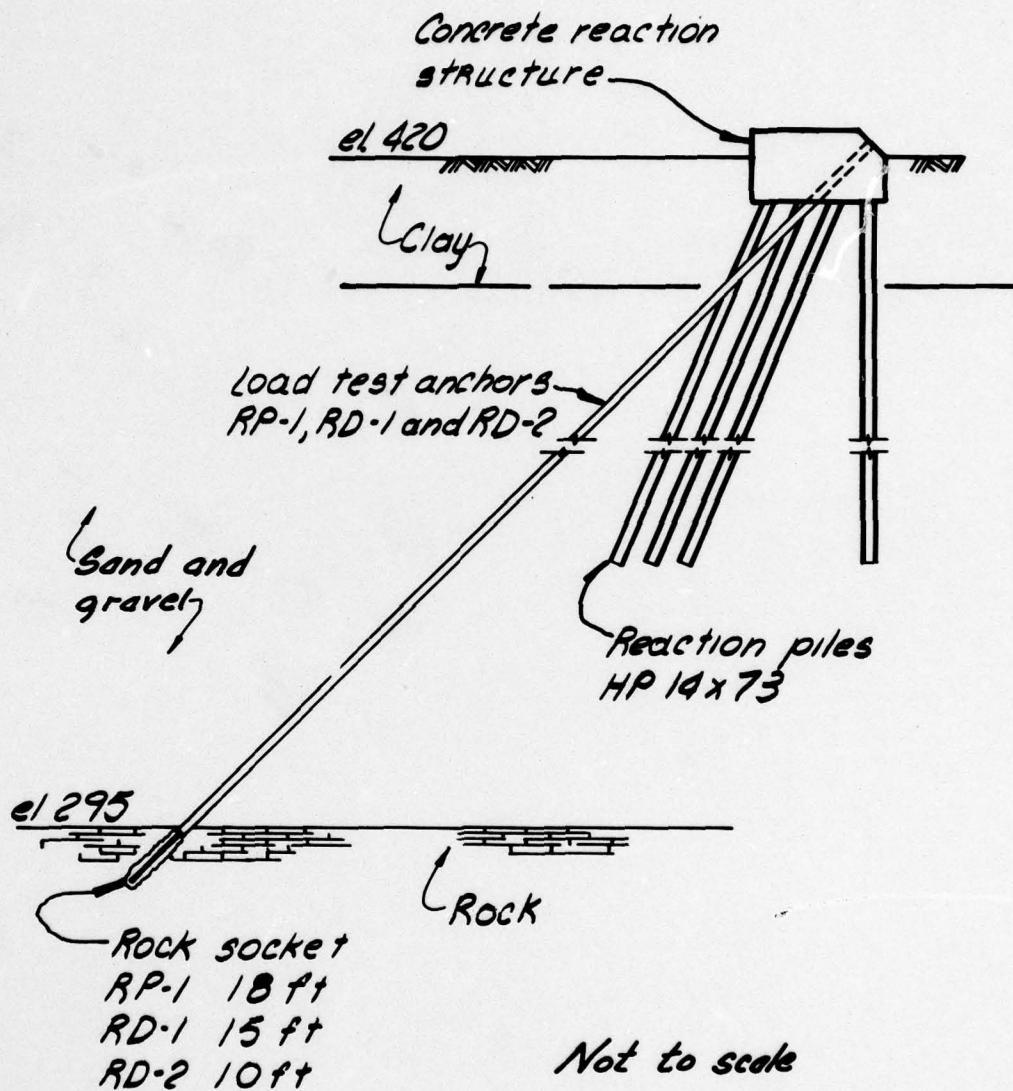 Concrete reaction
structure
el. 420
Clay
Load test anchors
RP-1, RD-1 and RD-2
Sand and
gravel
Reaction piles
HP 14x73
el 295
Rock
Rock socket
RP-1 18 ft
RD-1 15 ft
RD-2 10 ft
Not to scale